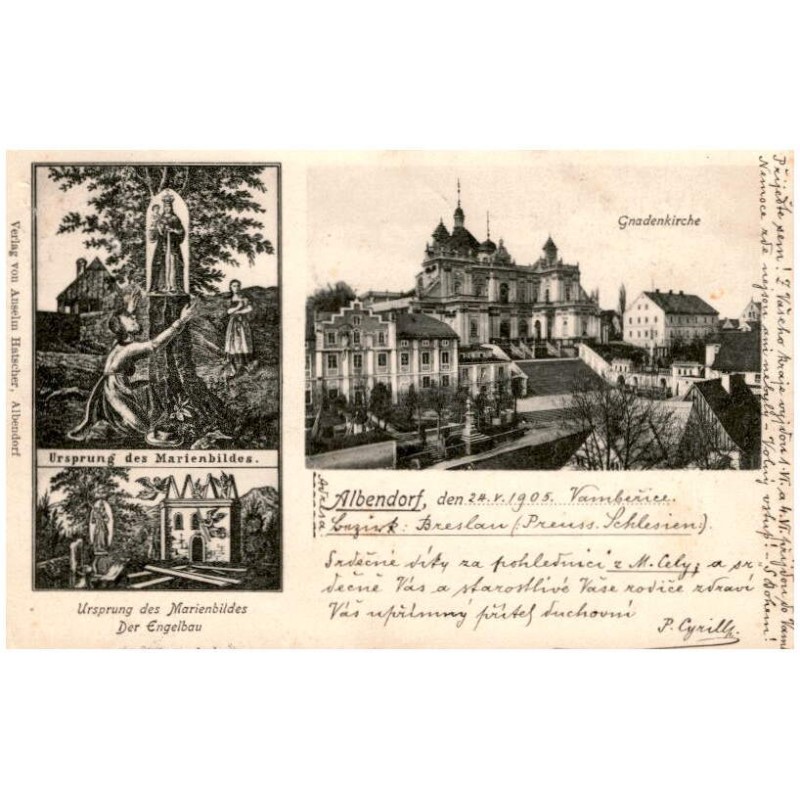 Verlag von Anselm Hatscher, Albendorf
Ursprung des Marienbildes.
Ursprung des Marienbildes
Der Engelbau
Gnadenkirche
Albendorf, den 24.V.1905. Vambeřice.
Adresa
Bezirk: Breslau (Preuss. Schlesien).
Srdečné díky za pohlednici z M. Cely, a sr-
dečně Vás a starostlivé Vaše rodiče zdraví
Váš upřímný přítel duchovní
P. Cyrill
Přijeďte sem! Z Vašeho kraje vyjdou 1.VI. a 4.VI. do Vam
Nemoce zde nejsou ani nebyly – Volný vstup! – S Bohem!